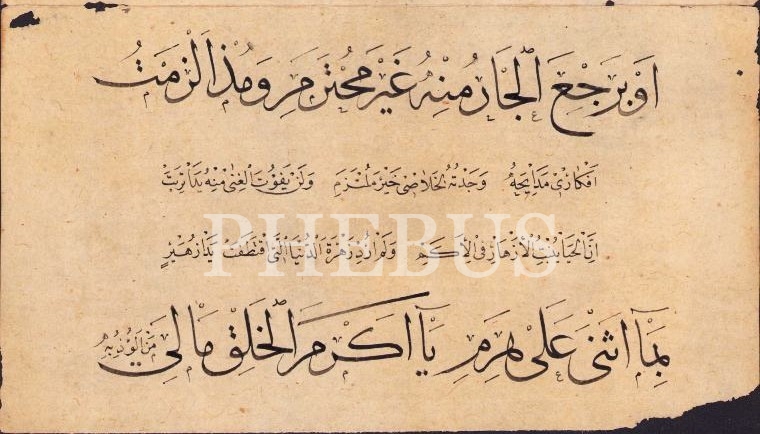 اَوْ يَرْجِعَ الْجَارُ مِنْهُ غَيْرَ مُحْتَرَمِ وَمُنْذُ اَلْزَمْتُ
اَفْكَارِى مَدَايِحَهُ وَجَدْتُهُ لِخَلَاصِى خَيْرَ مُلْتَزَمِ وَلَنْ يَفُوتَ الْغِنٰى مِنْهُ يَدًا تَرِبَتْ
PHEBUS
اِنَّ الْحَيَا يُنْبِتُ الْاَزْهَارَ فِى الْاَكَمِ وَلَمْ اُرِدْ زَهْرَةَ الدُّنْيَا الَّتِى اقْتَطَفَتْ يَدَا زُهَيْرٍ
بِمَآ اَثْنٰى عَلٰى هَرِمِ يَآ اَكْرَمَ الْخَلْقِ مَا لِى مَنْ اَلُوذُ بِهِ